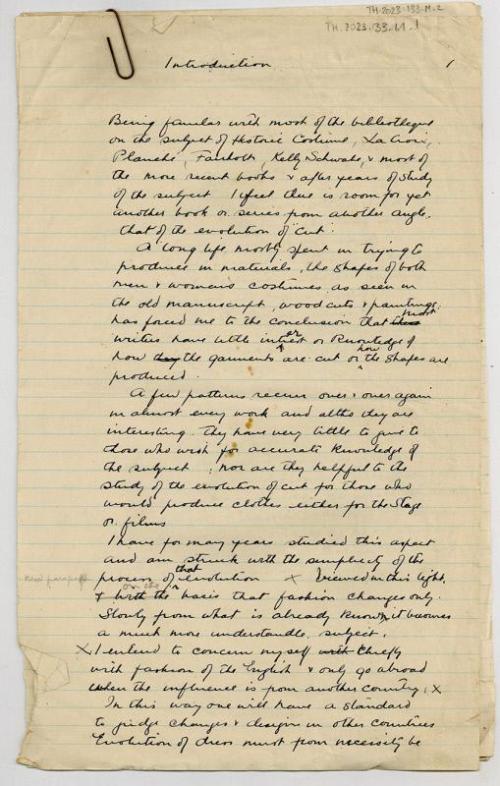 TH.2023-133-M-2
TH.2023.33.M.1
Introduction 1
Being familar with most of the bibliotheque
on the subject of Historic Costume, La Croix,
Planché, Fairholt, Kelly Schwabe, & most of
the more recent books & after years of study
of the subject I feel there is room for yet
another book or series from another angle.
that of the evolution of "cut"
A long life, mostly spent in trying to
produce in materials, the shapes of both
men & women's costumes, as seen in
the old manuscript, wood cuts & paintings,
has forced me to the conclusion that most
writers have little interest or knowledge of
how the garments are cut or how the shapes are
produced.
A few patterns recur over & over again
in almost every work and altho they are
interesting. they have very little to give to
those who wish for accurate knowledge of
the subject; nor are they helpful to the
study of the evolution of cut for those who
would produce clothes either for the Stage
or films
I have for many years studied this aspect
and am struck with the simplicity of the
new paragraph process of that evolution x Viewed in this light,
& with the basis that fashion changes only.
Slowly from what is already known, it becomes
a much more understandle, subject.
x I intend to concern myself with Chiefly
with fashion of the English & only go abroad
when the influence is from another country. x
In this way one will have a standard
to judge changes & design in other countries
Evolution of dress must from necessity be